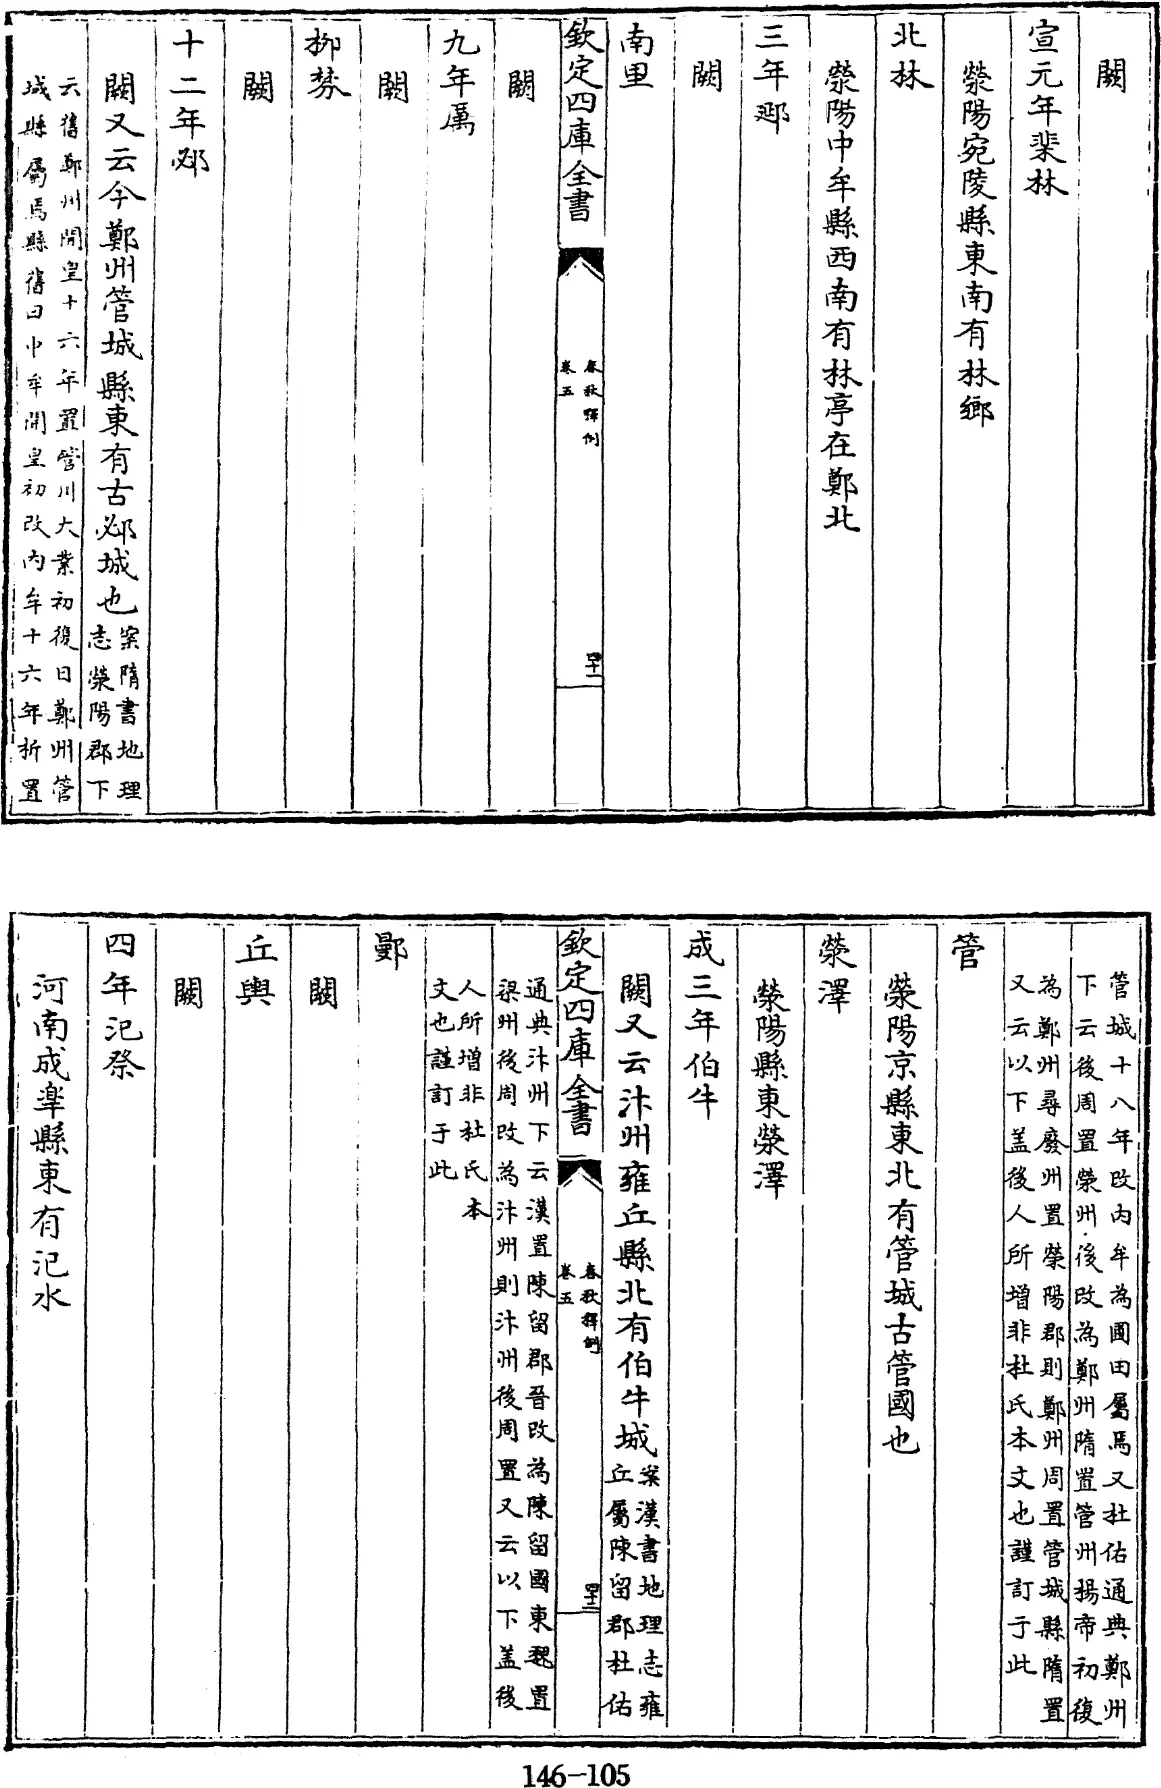 闕
宣元年棐林
滎陽宛陵縣東南有林鄉
北林
滎陽中牟縣西南有林亭在鄭北
三年郔
闕
南里
欽定四庫全書
春秋釋例
卷五
四十一
闕
九年厲
闕
柳棼
闕
十二年邲
闕又云今鄭州管城縣東有古邲城也
案隋書地理
志滎陽郡下
云舊鄭州開皇十六年置管州大業初復曰鄭州管
城縣屬焉縣舊曰中牟開皇初改内牟十六年析置
管城十八年改内牟為圃田屬焉又杜佑通典鄭州
下云後周置滎州後改為鄭州隋置管州煬帝初復
為鄭州尋廢州置滎陽郡則鄭州周置管城縣隋置
又云以下蓋後人所增非杜氏本文也謹訂于此
管
滎陽京縣東北有管城古管國也
滎澤
滎陽縣東滎澤
成三年伯牛
闕又云汴州雍丘縣北有伯牛城
案漢書地理志雍
丘屬陳留郡杜佑
欽定四庫全書
春秋釋例
卷五
四十二
通典汴州下云漢置陳留郡晉改為陳留國東魏置
梁州後周改為汴州則汴州後周置又云以下蓋後
人所增非杜氏本
文也謹訂于此
鄤
闕
丘輿
闕
四年汜祭
河南成臯縣東有汜水
146-105